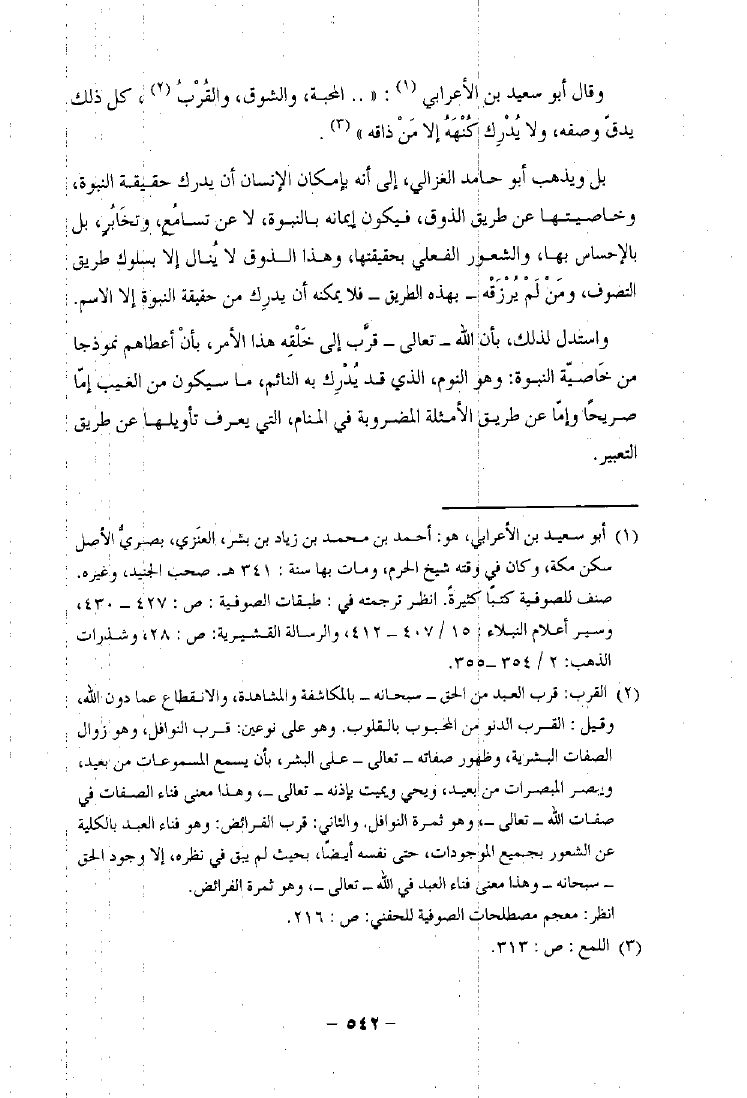 وقال أبو سعيد بن الأعرابي (١) : « .. المحبة، والشوق، والقُرْبُ (٢) ، كل ذلك
يدقّ وصفه، ولا يُدْرِك كُنْهَهُ إلا مَنْ ذاقه » (٣) .
بل ويذهب أبو حامد الغزالي، إلى أنه بإمكان الإنسان أن يدرك حقيقة النبوة،
وخاصيتها عن طريق الذوق، فيكون إيمانه بالنبوة، لا عن تسامُع، وتخَابُر، بل
بالإحساس بها، والشعور الفعلي بحقيقتها، وهذا الذوق لا يُنال إلا بسلوك طريق
التصوف، ومَنْ لَمْ يُرْزَقْه ــ بهذه الطريق ــ فلا يمكنه أن يدرك من حقيقة النبوة إلا الاسم.
واستدل لذلك، بأن الله ــ تعالى ــ قرَّب إلى خَلْقِه هذا الأمر، بأنْ أعطاهم نموذجا
من خَاصيّة النبوة: وهو النوم، الذي قد يُدْرِك به النائم، ما سيكون من الغيب إمّا
صريحًا وإمّا عن طريق الأمثلة المضروبة في المنام، التي يعرف تأويلها عن طريق
التعبير.
(١) أبو سعيد بن الأعرابي، هو: أحمد بن محمد بن زياد بن بشر، العنَزي، بصريُّ الأصل
سكن مكة، وكان في وقته شيخ الحرم، ومات بها سنة : ٣٤١ هـ. صحب الجنيد، وغيره.
صنف للصوفية كتبًا كثيرةً. انظر ترجمته في : طبقات الصوفية : ص : ٤٢٧ ــ ٤٣٠،
وسير أعلام النبلاء : ١٥ / ٤٠٧ ــ ٤١٢، والرسالة القشيرية: ص : ٢٨، وشذرات
الذهب: ٢ / ٣٥٤ ــ٣٥٥.
(٢) القرب: قرب العبد من الحق ــ سبحانه ــ بالمكاشفة والمشاهدة، والانقطاع عما دون الله،
وقيل : القرب الدنو من المحبوب بالقلوب. وهو على نوعين: قرب النوافل، وهو زوال
الصفات البشرية، وظهور صفاته ــ تعالى ــ على البشر، بأن يسمع المسموعات من بعيد،
ويبصر المبصرات من بعيد، ويحي ويميت بإذنه ــ تعالى ــ، وهذا معنى فناء الصفات في
صفات الله ــ تعالى ــ، وهو ثمرة النوافل. والثاني: قرب الفرائض: وهو فناء العبد بالكلية
عن الشعور بجميع الموجودات، حتى نفسه أيضًا، بحيث لم يبق في نظره، إلا وجود الحق
ــ سبحانه ــ وهذا معنى فناء العبد في الله ــ تعالى ــ، وهو ثمرة الفرائض.
انظر: معجم مصطلحات الصوفية للحفني: ص : ٢١٦.
(٣) اللمع : ص : ٣١٣.
– ٥٤٢ –